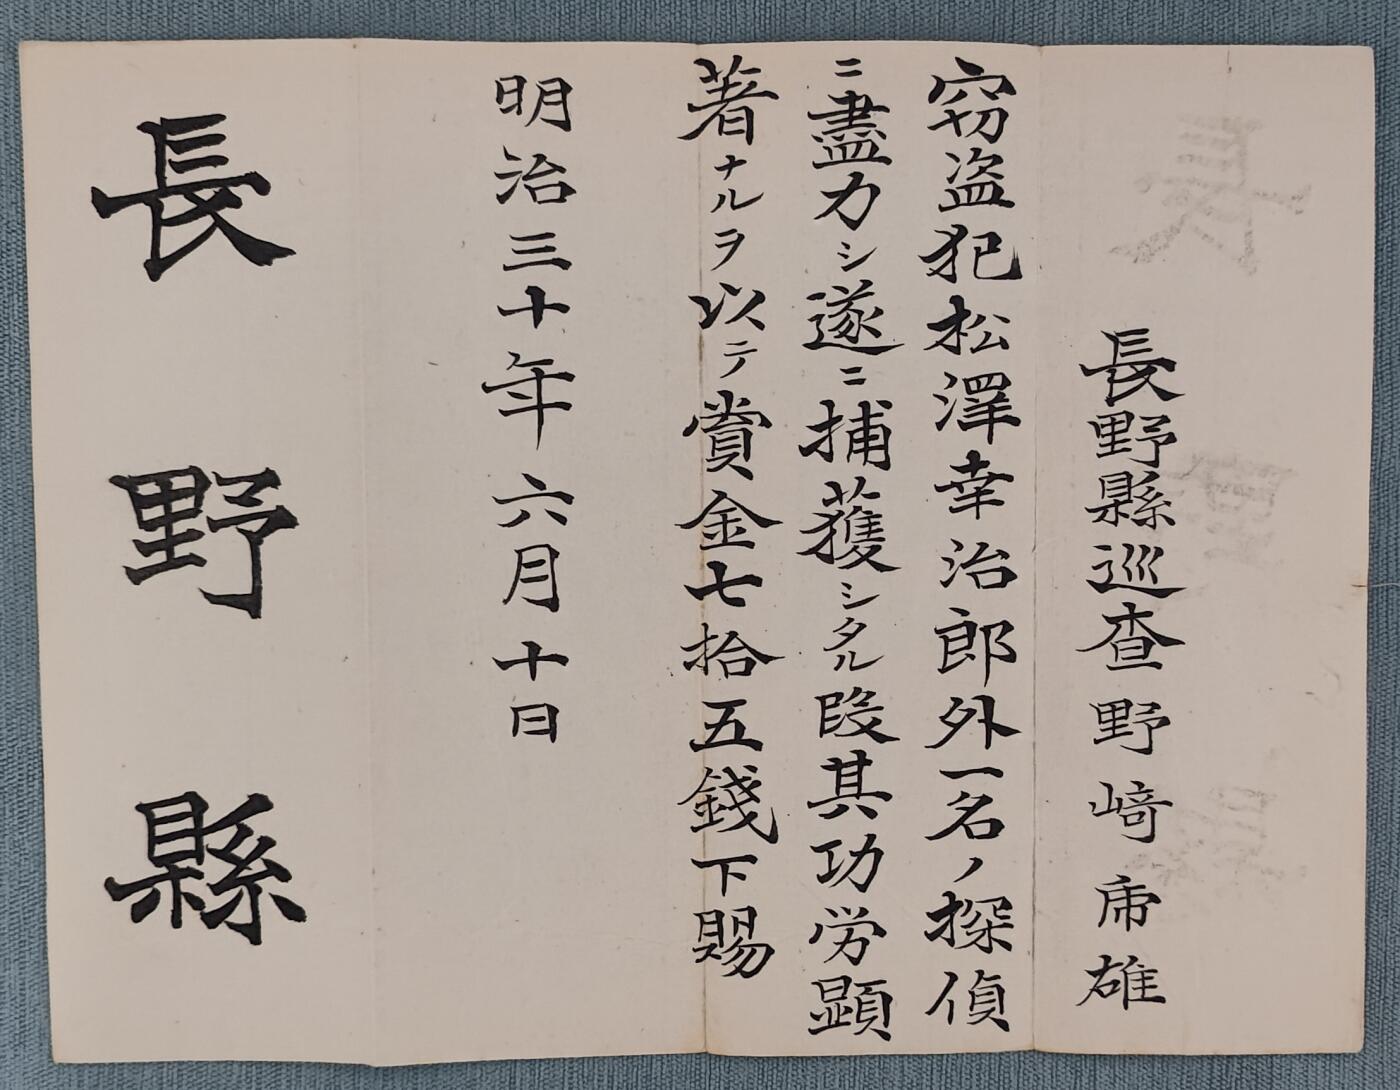 長野縣巡査野﨑乕雄
窃盗犯松澤幸治郎外一名ノ探偵
ニ盡力シ遂ニ捕獲シタル段其功労顕
著ナルヲ以テ賞金七拾五錢下賜
明治三十年六月十日
長野縣